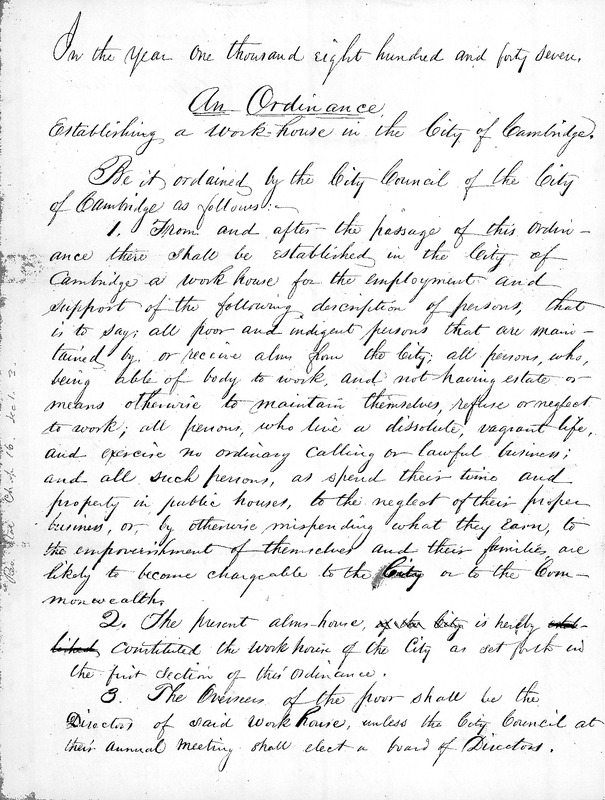 In the Year One thousand eight hundred and forty seven.
An Ordinance
Establishing a Work house in the City of Cambridge.
Be it ordained by the City Council of the City
of Cambridge as follows:-
1. From and after the passage of this Ordin-
ance there shall be established in the City of
Cambridge a work house for the employment and
support of the following description of persons, that
is to say; all poor and indigent persons that are main-
tained by or receive alms from the City; all persons, who,
being able of body to work, and not having estate or
means otherwise to maintain themselves, refuse or neglect
to work; all persons, who live a dissolute, vagrant life,
and exercise no ordinary calling or lawful business;
and all such persons, as spend their time and
property in public houses, to the neglect of their proper
business, or, by otherwise mispending what they earn, to
the empoverishment of themselves and their families, are
likely to become chargeable to the City or to the Com-
monwealth.
2. The present alms-house, in the City is hereby estab-
lished constituted the work house of the City as set forth in
the first section of this Ordinance.
3. The Overseers of the poor shall be the
Directors of said Work house, unless the City Council at
their annual meeting shall elect a board of Directors.
Ch. 16. Sect. 3.